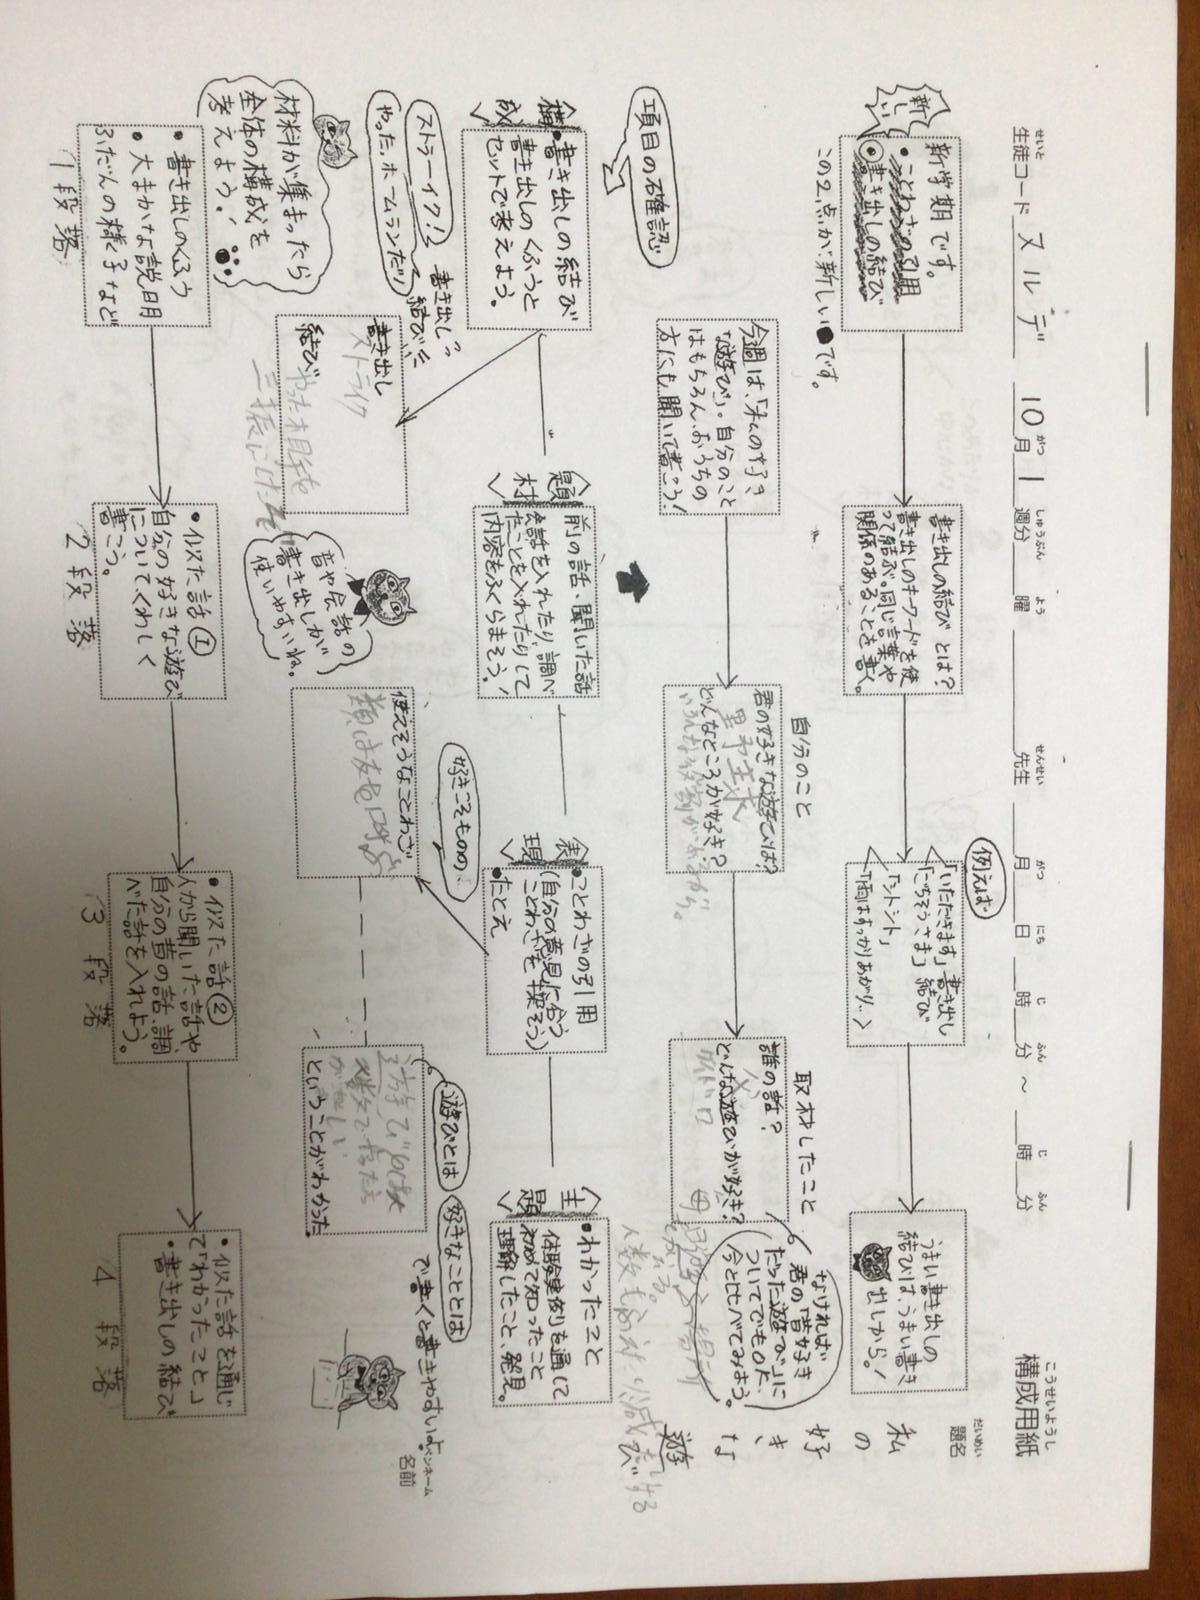 構成用紙
こうせいようし
生徒コード スルデ 10月1週分 曜 先生 月 日 時 分 ～ 時 分
せいと がつ しゅうぶん よう せんせい がつ にち じ ふん じ ふん
題名
だいめい
私の好きな遊び
名前
ペンネーム
新しい
新学期です。
・ことわざの引用
書き出しの結び
この2点が新しい●です。
書き出しの結びとは?
書き出しのキーワードを使
って結ぶ。同じ言葉や
関係のあることを書く。
例えば
「いただきます」書き出し
「ごちそうさま」結び
「シトシト」
「雨はすっかりあがり…
うまい書き出しの
結びは、うまい書き
出しから!
項目の確認
今週は、「私の好き
な遊び」。自分のこと
はもちろん、おうちの
方にも聞いて書こう!
自分のこと
君の好きな遊びは?
野球
どんなところが好き?
取材したこと
誰の話?
父
どんな遊びが好き?
母
なければ
君の「昔好き
だった遊び」に
ついてでもOK。
今と比べてみよう。
構成
・書き出しの結び
書き出しのくふうと
セットで考えよう。
題材
前の話・聞いた話
会話を入れたり、調べ
たことを入れたりして
内容をふくらまそう!
表現
・ことわざの引用
(自分の意見に合う
ことわざを探そう)
・たとえ
主題
・わかったこと
体験実例を通して
初めて知ったこと
理解したこと、発見。
ストラーイク!
やった、ホームランだ!
書き出し
結び
書き出し
ストライク
結び
やった相手を
音や会話の
書き出しが
使いやすいね。
好きこそものの
使えそうなことわざ
類は友を呼ぶ
遊びとは
好きなこととは
で書くと書きやすいよ
遊びは
ということがわかった
材料が集まったら
全体の構成を
考えよう!
・書き出しのくふう
・大まかな説明
ふだんの様子など
1段落
・似た話①
自分の好きな遊び
についてくわしく
書こう。
2段落
・似た話②
人から聞いた話や、
自分の昔の話、調
べた話を入れよう。
3段落
・似た話を通じ
て「わかったこと」
・書き出しの結び
4段落